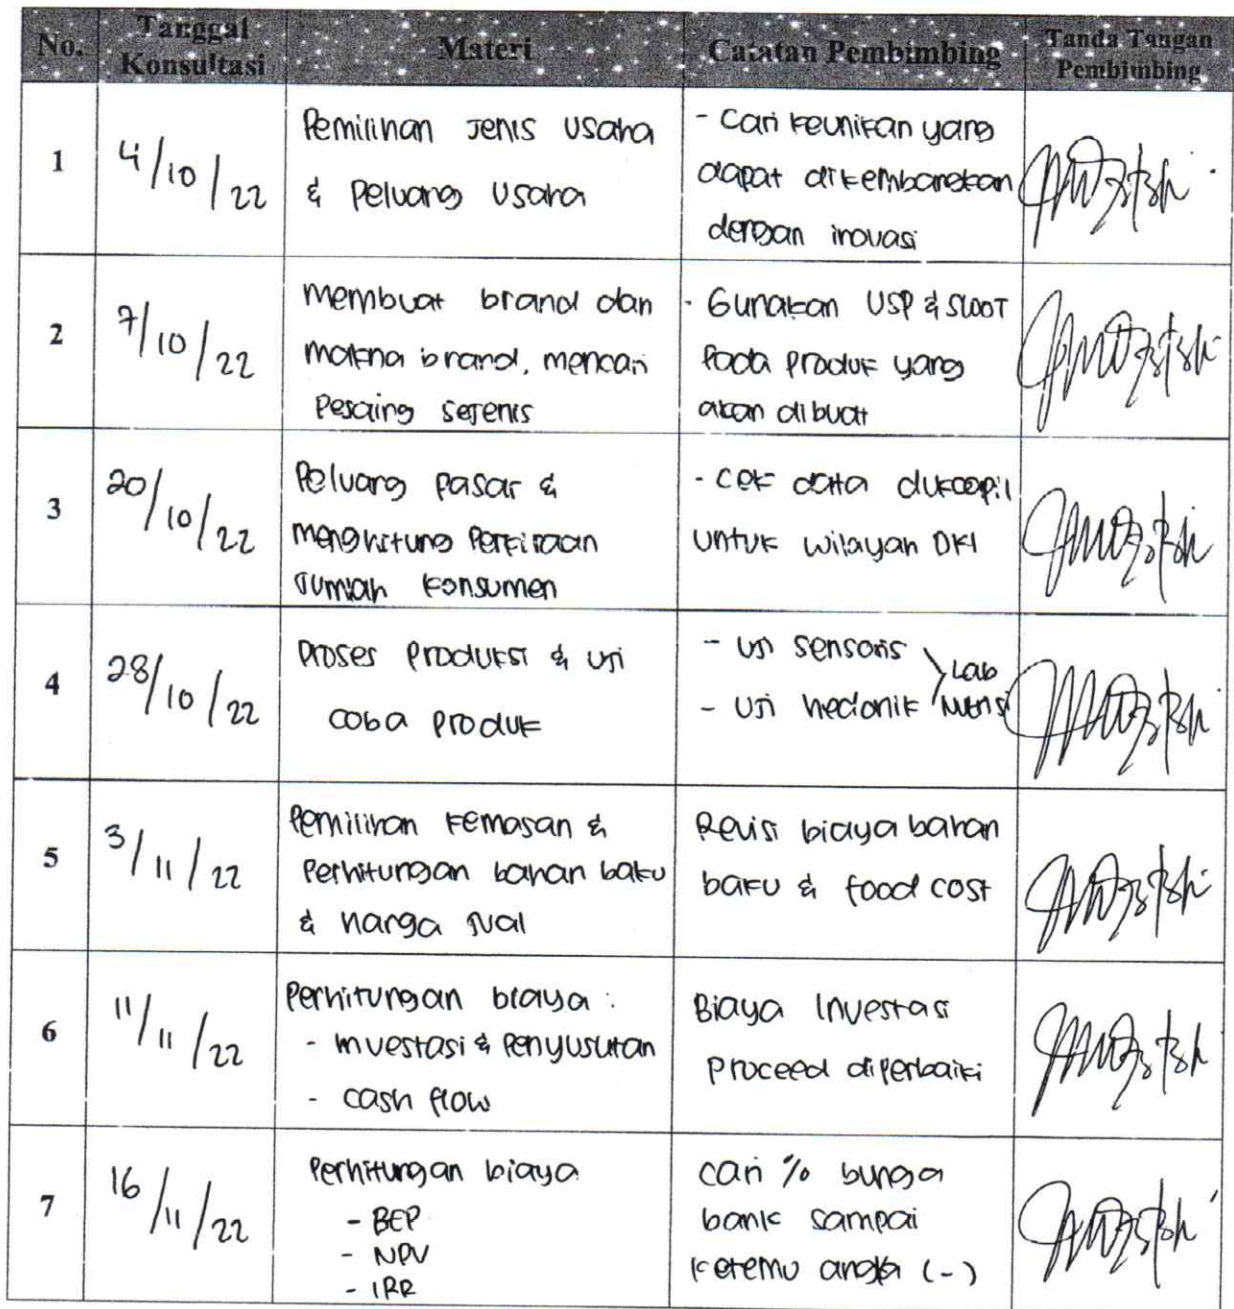 No.
Tanggal
Konsultasi
Materi
Catatan Pembimbing
Tanda Tangan
Pembimbing
1
4/10/22
Pemilihan Jenis Usaha
& Peluang Usaha
- Cari keunikan yang
dapat dikembangkan
dengan inovasi
2
7/10/22
Membuat brand dan
makna brand, mencari
Pesaing sejenis
- Gunakan USP & SWOT
Pada Produk yang
akan dibuat
3
20/10/22
Peluang Pasar &
menghitung Perkiraan
Jumlah Konsumen
- Cek data dukcapil
untuk wilayah DKI
4
28/10/22
Proses Produksi & uji
coba Produk
- uji sensoris
- uji hedonik
Lab
Nutrisi
5
3/11/22
Pemilihan kemasan &
Perhitungan bahan baku
& harga jual
Revisi biaya bahan
baku & food cost
6
11/11/22
Perhitungan biaya :
- investasi & Penyusutan
- cash flow
Biaya Investasi
Proceed diperbaiki
7
16/11/22
Perhitungan biaya
- BEP
- NPV
- IRR
cari % bunga
bank sampai
ketemu angka (-)